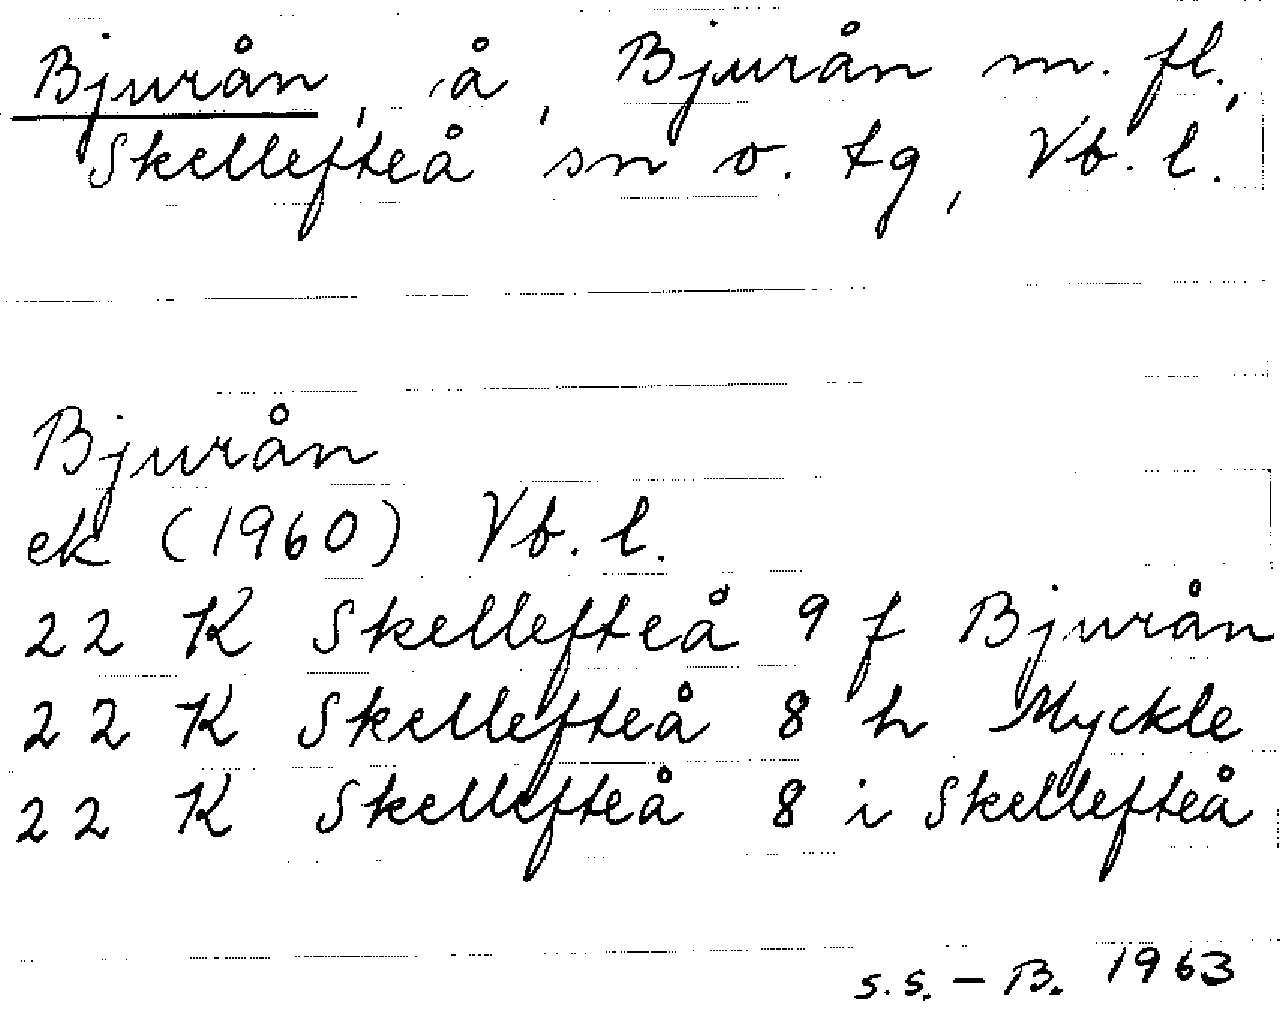 Bjurån, å, Bjurån m. fl.,
Skellefteå sn o. tg, Vb. l.
Bjurån
ek (1960) Vb. l.
22 K Skellefteå 9 f Bjurån
22 K Skellefteå 8 h Myckle
22 K Skellefteå 8 i Skellefteå
S.S. - B. 1963